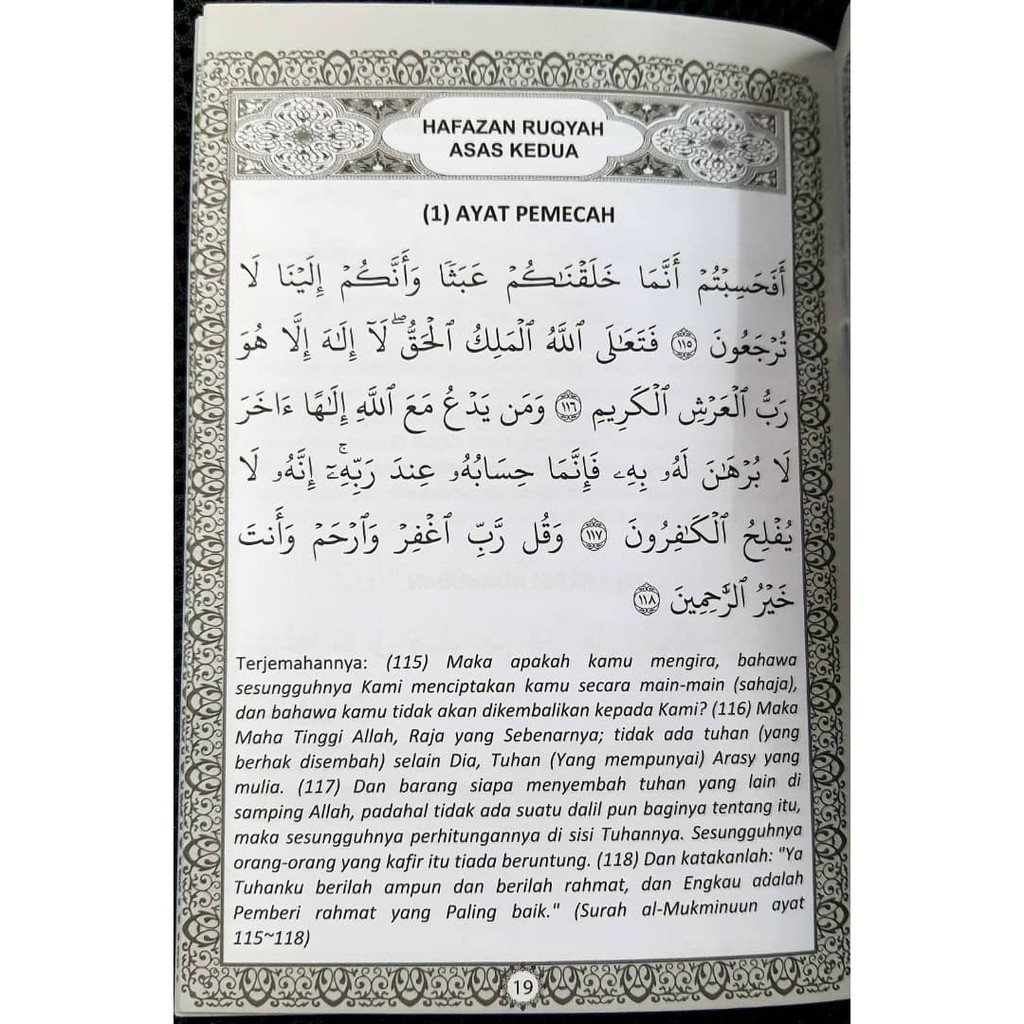 HAFAZAN RUQYAH
ASAS KEDUA
(1) AYAT PEMECAH
أَفَحَسِبْتُمْ أَنَّمَا خَلَقْنَـٰكُمْ عَبَثًا وَأَنَّكُمْ إِلَيْنَا لَا
تُرْجَعُونَ ١١٥ فَتَعَـٰلَى ٱللَّهُ ٱلْمَلِكُ ٱلْحَقُّ ۖ لَآ إِلَـٰهَ إِلَّا هُوَ
رَبُّ ٱلْعَرْشِ ٱلْكَرِيمِ ١١٦ وَمَن يَدْعُ مَعَ ٱللَّهِ إِلَـٰهًا ءَاخَرَ
لَا بُرْهَـٰنَ لَهُۥ بِهِۦ فَإِنَّمَا حِسَابُهُۥ عِندَ رَبِّهِۦٓ ۚ إِنَّهُۥ لَا
يُفْلِحُ ٱلْكَـٰفِرُونَ ١١٧ وَقُل رَّبِّ ٱغْفِرْ وَٱرْحَمْ وَأَنتَ
خَيْرُ ٱلرَّٰحِمِينَ ١١٨
Terjemahannya: (115) Maka apakah kamu mengira, bahawa
sesungguhnya Kami menciptakan kamu secara main-main (sahaja),
dan bahawa kamu tidak akan dikembalikan kepada Kami? (116) Maka
Maha Tinggi Allah, Raja yang Sebenarnya; tidak ada tuhan (yang
berhak disembah) selain Dia, Tuhan (Yang mempunyai) Arasy yang
mulia. (117) Dan barang siapa menyembah tuhan yang lain di
samping Allah, padahal tidak ada suatu dalil pun baginya tentang itu,
maka sesungguhnya perhitungannya di sisi Tuhannya. Sesungguhnya
orang-orang yang kafir itu tiada beruntung. (118) Dan katakanlah: "Ya
Tuhanku berilah ampun dan berilah rahmat, dan Engkau adalah
Pemberi rahmat yang Paling baik." (Surah al-Mukminuun ayat
115~118)
19